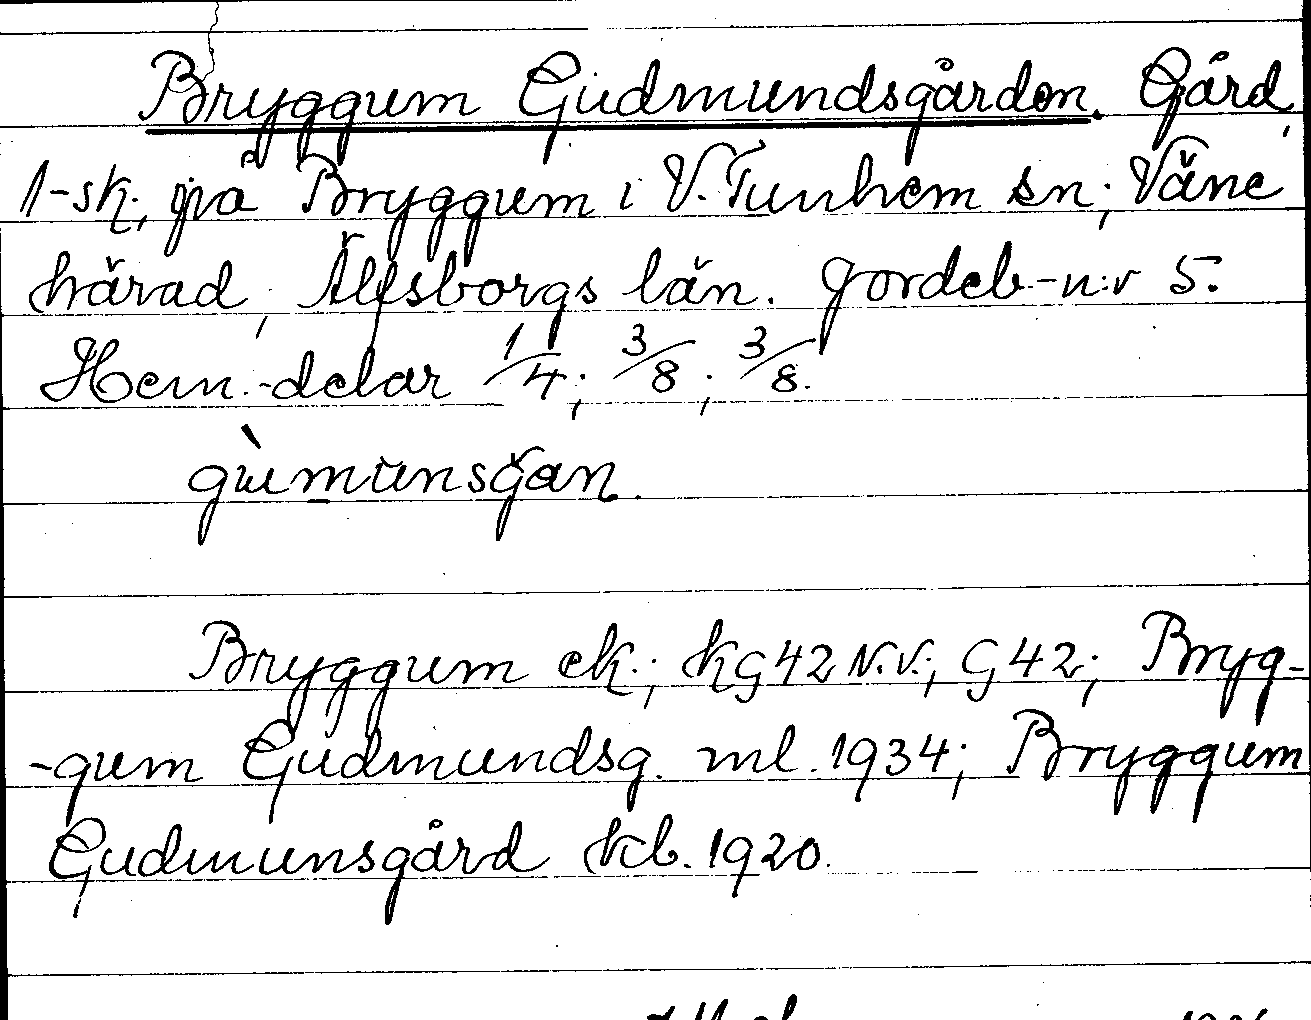 Bryggum Gudmundsgården. Gård,
1-sk., på Bryggum i V. Tunhem sn; Väne
härad, Älfsborgs län. Jordeb-n:r 5.
Hem.-delar 1/4; 3/8; 3/8.
gùmunsğan.
Bryggum ek.; KG42 N.V.; G42; Bryg-
-gum Gudmundsg. ml. 1934; Bryggum
Gudmunsgård kb. 1920.